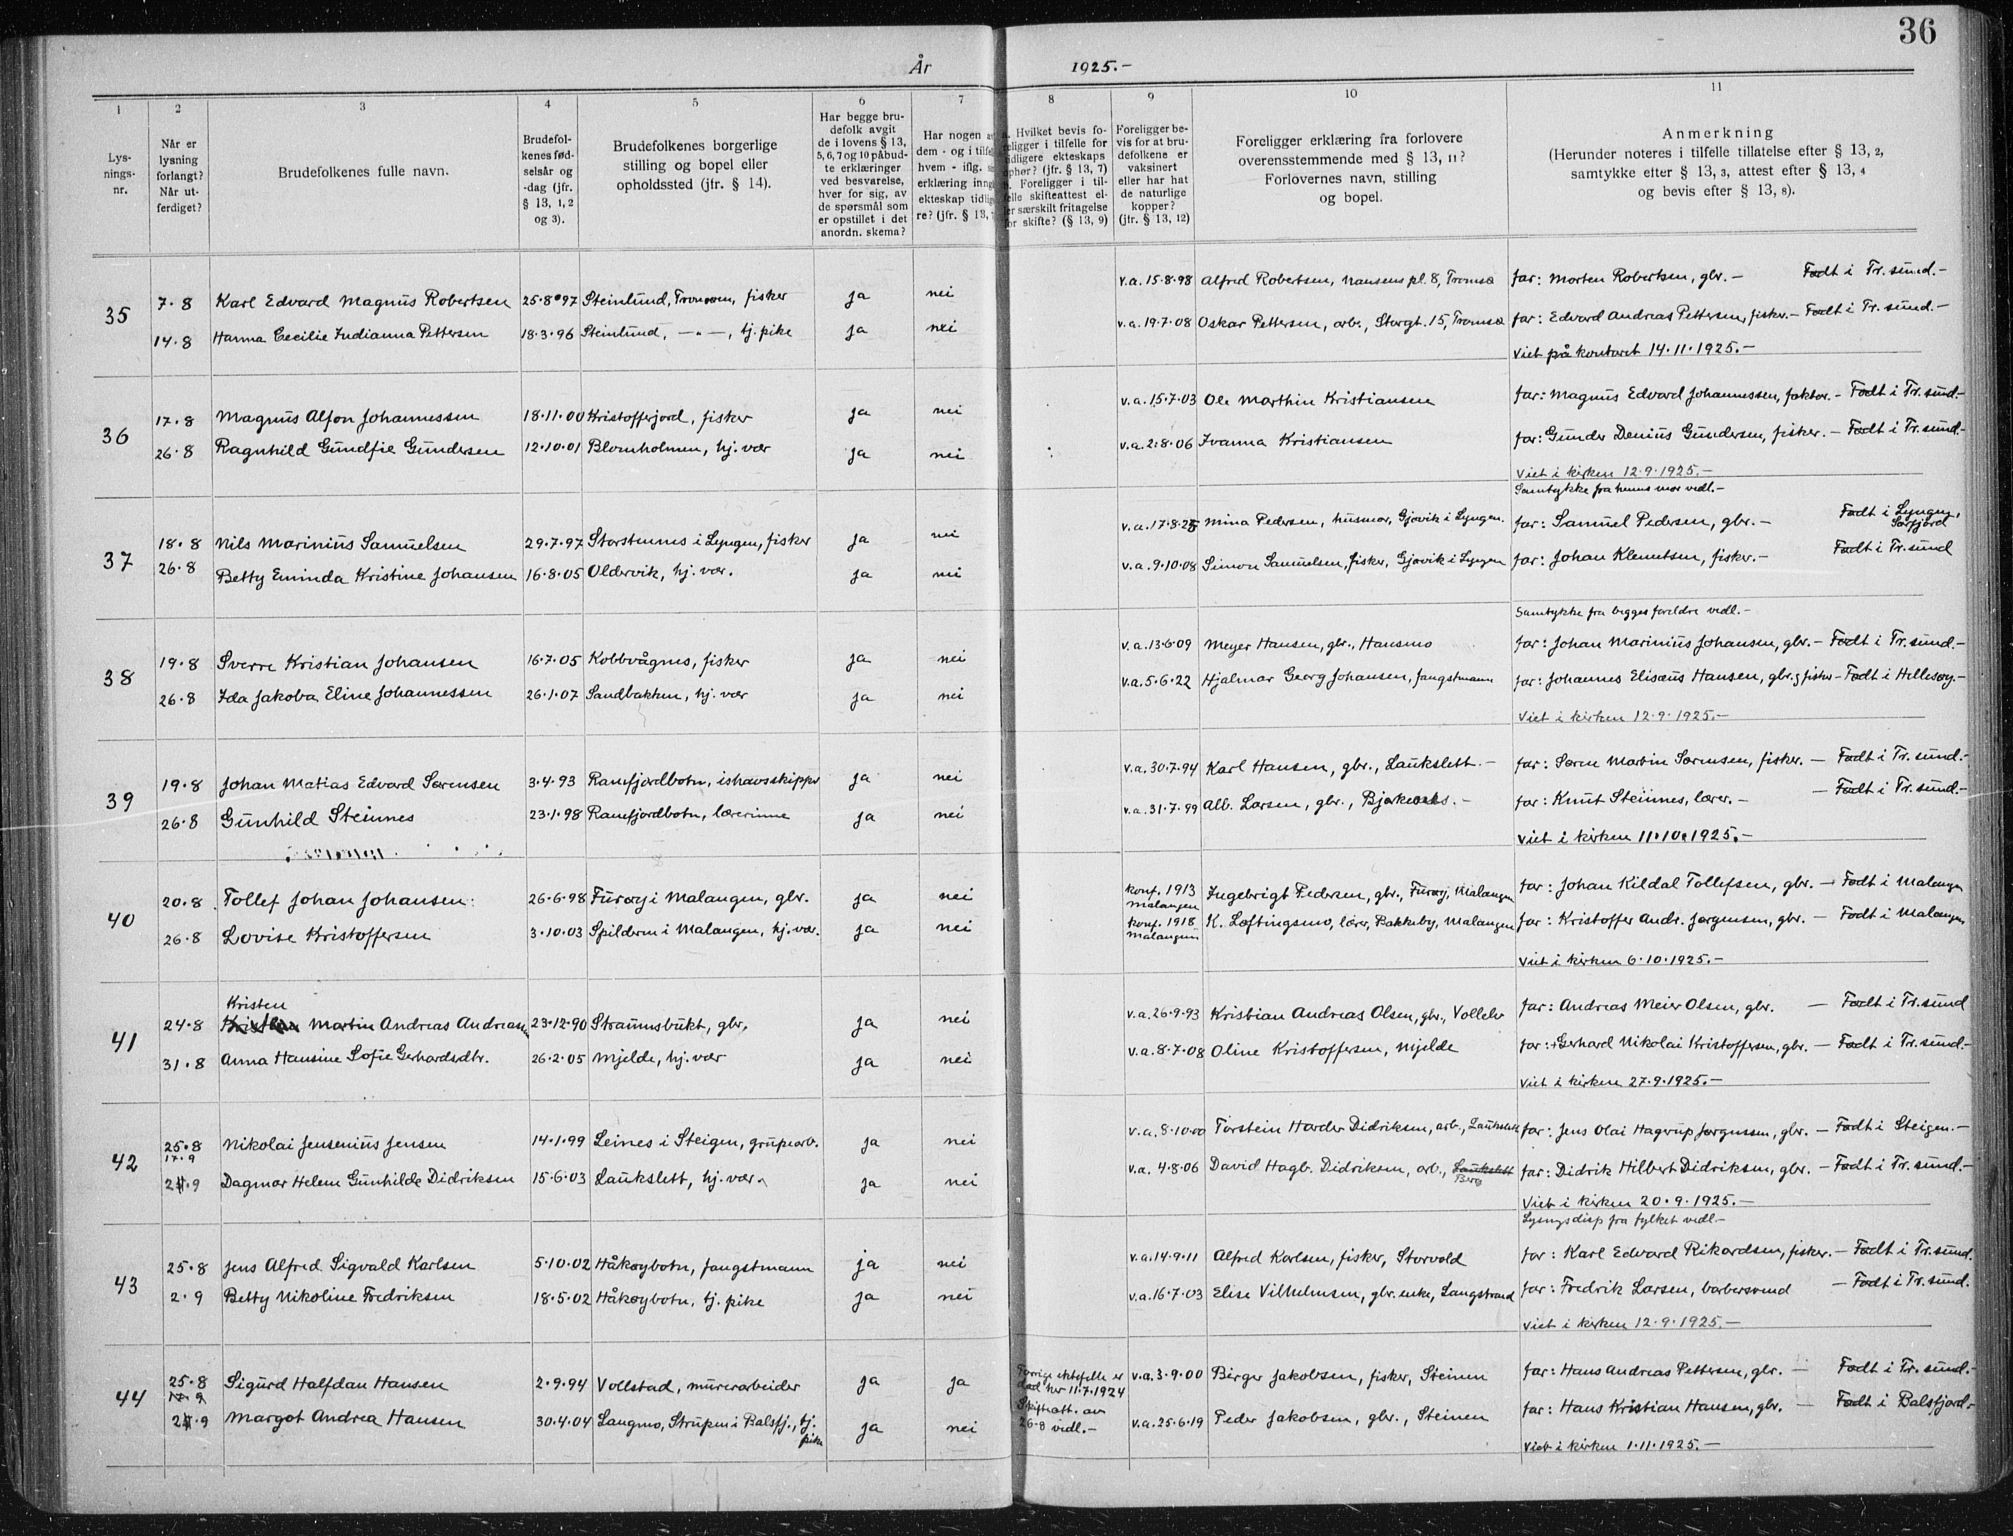 36
År 1925.-
1 2 3 4 5 6 7 8 9 10 11
Lys-
nings-
nr.
Når er
lysning
forlangt?
Når ut-
ferdiget?
Brudefolkenes fulle navn.
Brudefol-
kenes fød-
selsår og
-dag (jfr.
§ 13, 1, 2
og 3).
Brudefolkenes borgerlige
stilling og bopel eller
opholdssted (jfr. § 14).
Har begge bru-
defolk avgit
de i lovens § 13,
5, 6, 7 og 10 påbud-
te erklæringer
ved besvarelse,
hver for sig, av
de spørsmål som
er opstillet i det
anordn. skema?
Har nogen a
dem - og i tilfel
hvem - iflg.
erklæring inng
ekteskap tidlig
re? (jfr. § 13,
a. Hvilket bevis fo-
religger i tilfelle for
tidligere ekteskaps
ophør? (jfr. § 13, 7)
b. Foreligger i til-
felle skifteattest el-
er særskilt fritagelse
for skifte? (§ 13, 9)
Foreligger be-
vis for at bru-
defolkene er
vaksinert
eller har hat
de naturlige
kopper?
(jfr. § 13, 12)
Foreligger erklæring fra forlovere
overensstemmende med § 13, 11?
Forlovernes navn, stilling
og bopel.
Anmerkning
(Herunder noteres i tilfelle tillatelse efter § 13, 2,
samtykke efter § 13, 3, attest efter § 13, 4
og bevis efter § 13, 8).
35 7.8 Karl Edvard Magnus Robertsen 25.8.97 Steinlund, Tromsøsn, fisker ja nei v.a. 15.8.98 Alfred Robertsen, Nansens pl. 8, Tromsø far: Morten Robertsen, gbr. - Født i Tr.sund.-
14.8 Hanna Cecilie Indianna Pettersen 18.3.96 Steinlund, -"-, tj. pike ja nei v.a. 19.7.08 Oskar Pettersen, arb., Storgt. 15, Tromsø far: Edvard Andreas Pettersen, fisker.- Født i Tr. sund.-
Viet på kontoret 14.11.1925.-
36 17.8 Magnus Alfon Johannessen 18.11.00 Kristofferjord, fisker ja nei v.a. 15.7.03 Ole Marthin Kristiansen far: Magnus Edvard Johannessen, faktor. - Født i Tr.sund.-
26.8 Ragnhild Gundfie Gundersen 12.10.01 Blomholmen, hj.vær ja nei v.a. 2.8.06 Ivanna Kristiansen far: Gunder Denius Gundersen, fisker. - Født i Tr.sund.-
Viet i kirken 12.9.1925.-
Samtykke fra hennes mor vedl.-
37 18.8 Nils Marinius Samuelsen 29.7.97 Storstennes i Lyngen, fisker ja nei v.a. 17.8.25 Mina Pedersen, husmor, Gjøvik i Lyngen. far: Samuel Pedersen, gbr. - Født i Lyngen,
Sørfjord
26.8 Betty Eminda Kristine Johansen 16.8.05 Oldervik, hj. vær. ja nei v.a. 9.10.08 Simon Samuelsen, fisker, Gjøvik i Lyngen far: Johan Klemetsen, fisker.- Født i Tr.sund
Samtykke fra begges foreldre vedl.-
38 19.8 Sverre Kristian Johansen 16.7.05 Kobbvågnes, fisker ja nei v.a. 13.6.09 Meyer Hansen, gbr., Hansmo far: Johan Marinius Johansen, gbr. - Født i Tr.sund.-
26.8 Ida Jakoba Eline Johannessen 26.1.07 Sandbakken, hj. vær ja nei v.a. 5.6.22 Hjalmar Georg Johansen, fangstmann far: Johannes Elisæus Hansen, gbr. & fisker - Født i Hillesøy.-
Viet i kirken 12.9.1925.-
39 19.8 Johan Matias Edvard Sørensen 3.4.93 Ramfjordbotn, ishavsskipper ja nei v.a. 30.7.94 Karl Hansen, gbr., Laukslett. - far: Søren Martin Sørensen, fisker. - Født i Tr.sund.-
26.8 Gunhild Steinnes 23.1.98 Ramfjordbotn, lærerinne ja nei v.a. 31.7.99 Alb. Larsen, gbr., Bjørkenes. - far: Knut Steinnes, lærer. - - Født i Tr.sund.-
Viet i kirken 11.10.1925.-
40 20.8 Tollef Johan Johansen. 26.6.98 Furøy i Malangen, gbr. ja nei konf. 1913
Malangen Ingebrigt Pedersen, gbr., Furøy, Malangen far: Johan Kildal Tollefsen, gbr. - Født i Malangen
26.8 Lovise Kristoffersen 3.10.03 Spilderen i Malangen, hj.vær. ja nei konf. 1918
Malangen K. Løftingsmo, lærer, Bakkeby, Malangen far: Kristoffer Andr. Jørgensen, gbr. - Født i Malangen
Viet i kirken 6.10.1925.-
Kristen
41 24.8 Martin Andreas Andreassen 23.12.90 Straumsbukt, gbr. ja nei v.a. 26.9.93 Kristian Andreas Olsen, gbr., Vollelv far: Andreas Meier Olsen, gbr. - Født i Tr.sund
31.8 Anna Hansine Sofie Gerhardsdtr. 26.2.05 Mjelde, hj. vær ja nei v.a. 8.7.08 Oline Kristoffersen, Mjelde far: Gerhard Nikolai Kristoffersen, gbr. - Født i Tr.sund.-
Viet i kirken 27.9.1925.-
42 25.8
17.9 Nikolai Jensenius Jensen 14.1.99 Leines i Steigen, grubearb. ja nei v.a. 8.10.00 Torstein Harder Didriksen, arb., Laukslett far: Jens Olai Hagrup Jørgensen, gbr. - Født i Steigen.-
21.9 Dagmar Helene Gunhilde Didriksen 15.6.03 Laukslett, hj. vær. ja nei v.a. 4.8.06 David Hagb. Didriksen, arb., Laukslett
Berg far: Didrik Hilbert Didriksen, gbr. - Født i Tr.sund.-
Viet i kirken 20.9.1925.-
Lysngsdisp fra fylket vedl.-
43 25.8 Jens Alfred Sigvald Karlsen 5.10.02 Håkøybotn, fangstmann ja nei v.a. 14.9.11 Alfred Karlsen, fisker, Storvold far: Karl Edvard Rikardsen, fisker. - Født i Tr.sund.
2.9 Betty Nikoline Fredriksen 18.5.02 Håkøybotn, tj. pike ja nei v.a. 16.7.03 Elise Vilhelmsen, gbr. enke, Langstrand far: Fredrik Larsen, barbersvend - Født i Tr.sund.
Viet i kirken 12.9.1925.-
44 25.8
17.9 Sigurd Halfdan Hansen 2.9.94 Vollstad, murerarbeider ja ja Forrige ektefelle er
død her 11.7.1924 v.a. 3.9.00 Birger Jakobsen, fisker, Steinen far: Hans Andreas Pettersen, gbr. - Født i Tr. sund.-
21.9 Margot Andrea Hansen 30.4.04 Langmo, Strupen i Balsfj., tj.
pike ja nei Skifteatt. av
26.8 vedl.- v.a. 25.6.19 Peder Jakobsen, gbr., Steinen far: Hans Kristian Hansen, gbr. - Født i Balsfjord.-
Viet i kirken 1.11.1925.-